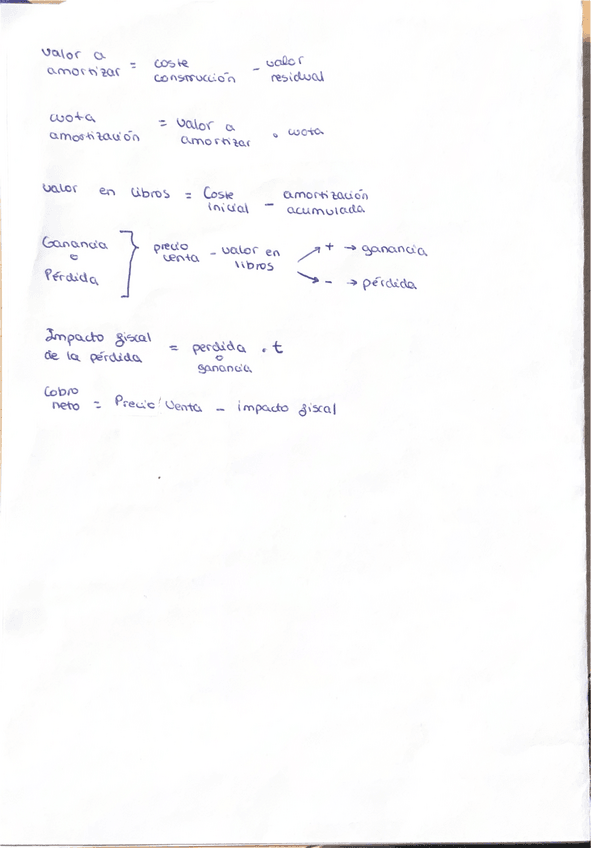 valor a amortizar = coste construcción - valor residual
cuota amortización = valor a amortizar · cuota
valor en libros = Coste inicial - amortización acumulada
Ganancia o Pérdida } precio venta - valor en libros
+ → ganancia
- → pérdida
Impacto fiscal de la pérdida = perdida o ganancia · t
Cobro neto = Precio Venta - impacto fiscal